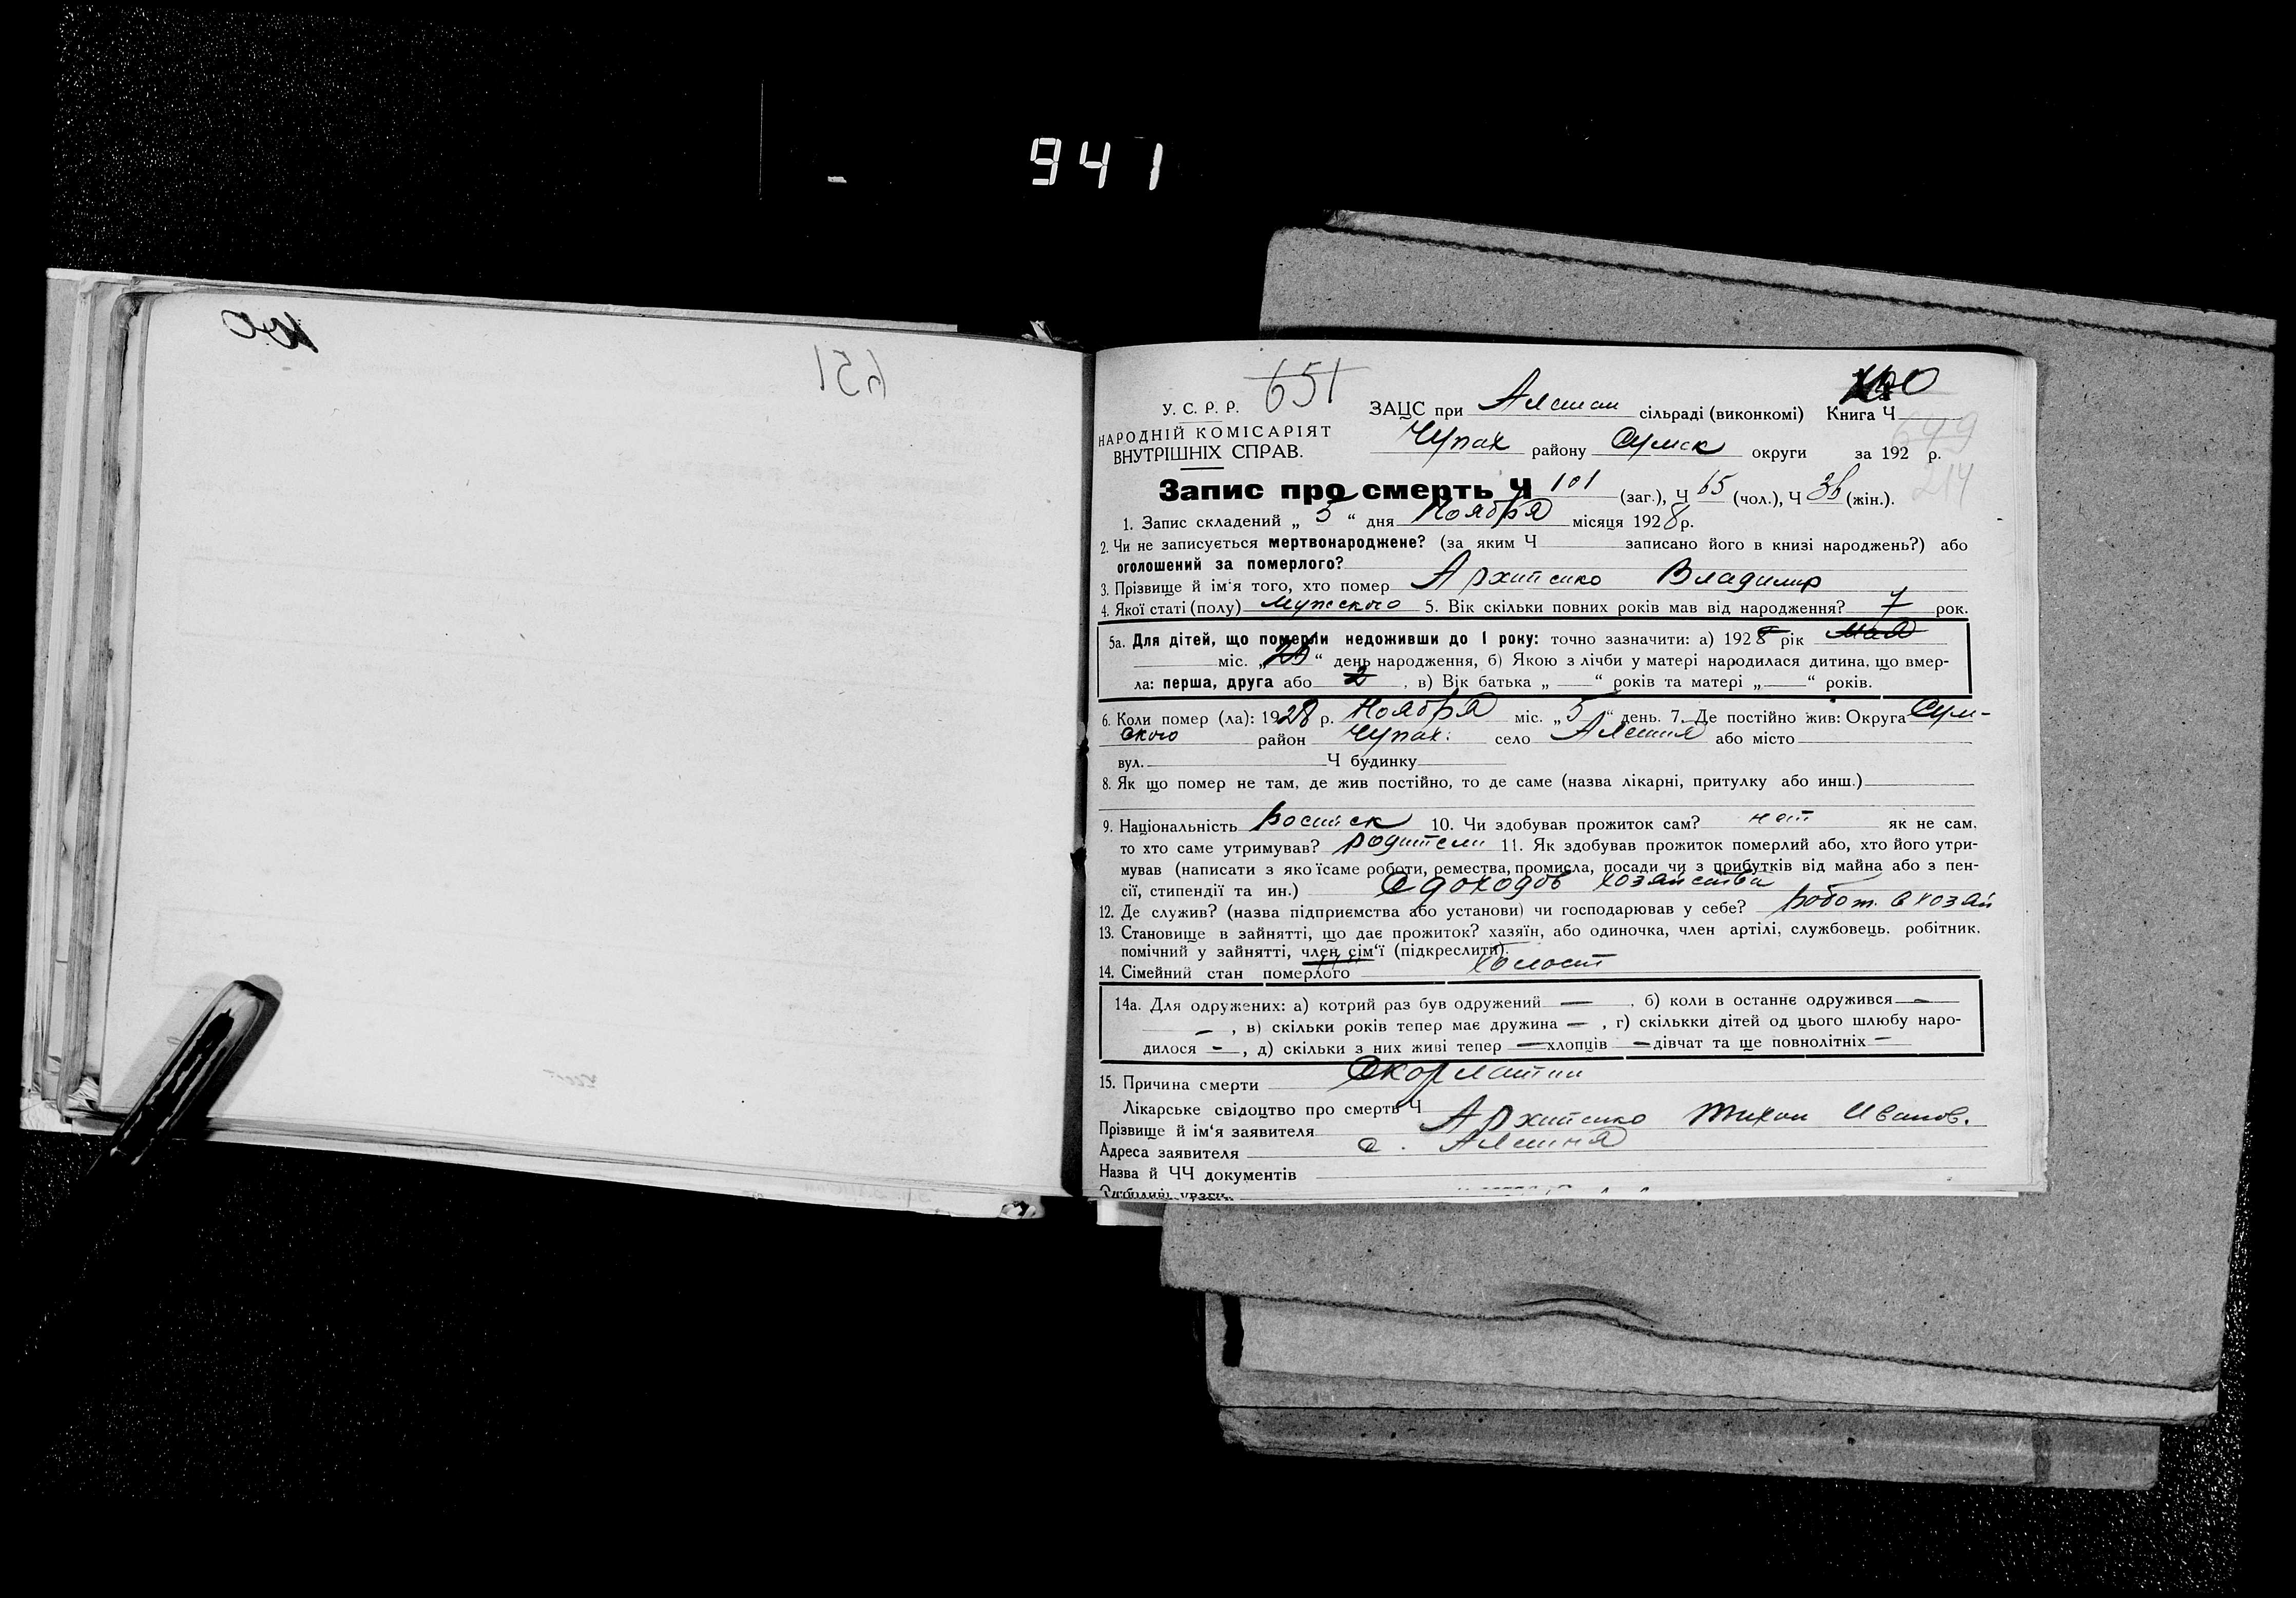 941
651
651
У. С. Р. Р.
НАРОДНІЙ КОМІСАРІЯТ
ВНУТРІШНІХ СПРАВ.
ЗАЦС при Алешан сільраді (виконкомі) Книга Ч
Чупах району Сумск округи за 192 р.
699
214
Запис про смерть Ч 101 (заг.), Ч 65 (чол.), Ч 36 (жін.).
1. Запис складений „ 5 “ дня Ноября місяця 1928 р.
2. Чи не записується мертвонароджене? (за яким Ч записано його в книзі народжень?) або
оголошений за померлого?
3. Прізвище й ім'я того, хто помер Архипенко Владимир
4. Якої статі (полу) Мужского 5. Вік скільки повних років мав від народження? 7 рок.
5а. Для дітей, що померли недоживши до 1 року: точно зазначити: а) 1928 рік мая
міс. „20“ день народження, б) Якою з лічби у матері народилася дитина, що вмер-
ла: перша, друга або 2, в) Вік батька „ — “ років та матері „ — “ років.
6. Коли помер (ла): 1928 р. Ноября міс. „ 5 “ день. 7. Де постійно жив: Округа Сум-
ского район Чупах: село Алешня або місто
вул. Ч будинку
8. Як що помер не там, де жив постійно, то де саме (назва лікарні, притулку або инш.)
9. Національність 10. Чи здобував прожиток сам? нет як не сам,
то хто саме утримував? родители 11. Як здобував прожиток померлий або, хто його утри-
мував (написати з якоїсаме роботи, ремества, промисла, посади чи з прибутків від майна або з пен-
сії, стипендії та ин.) С доходов хозяйства
12. Де служив? (назва підприємства або установи) чи господарював у себе? робот. в хозяй
13. Становище в зайнятті, що дає прожиток? хазяїн, або одиночка, член артілі, службовець, робітник,
помічний у зайнятті, член сім'ї (підкреслити).
14. Сімейний стан померлого Холост
14а. Для одружених: а) котрий раз був одружений — , б) коли в останнє одружився —
— , в) скільки років тепер має дружина — , г) скількки дітей од цього шлюбу наро-
дилося — , д) скільки з них живі тепер — хлопців — дівчат та ще повнолітніх —
15. Причина смерти Скорлатин
Лікарське свідоцтво про смерть Ч
Прізвище й ім'я заявителя Архипенко Тихон Иванов.
Адреса заявителя с. Алешня
Назва й ЧЧ документів